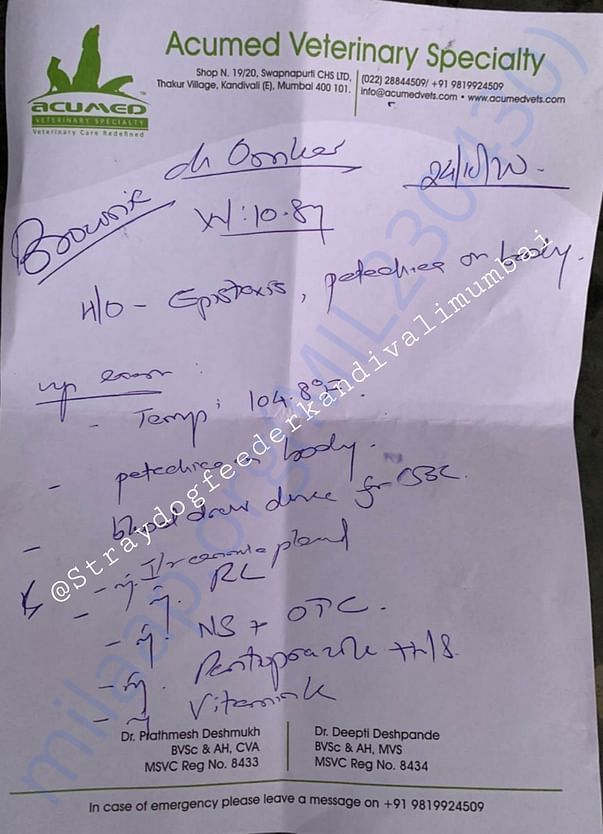 Acumed Veterinary Specialty
Shop N. 19/20, Swapnapurti CHS LTD,
Thakur Village, Kandivali (E), Mumbai 400 101.
(022) 28844509/ +91 9819924509
info@acumedvets.com • www.acumedvets.com
ACUMED
VETERINARY SPECIALTY
Veterinary Care Redefined
Brownie
24/10/20.
W: 10.87
H/O - Epistaxis, petechiea on body.
exam :
- Temp: 104.8°F.
- petechiea on body.
- blood draw done for CBC.
RL
NS + OTC.
Pantoprazole
Vitamin K
@Straydogfeederkandivalimumbai
milaap.org(MIL230430)
Dr. Prathmesh Deshmukh
BVSc & AH, CVA
MSVC Reg No. 8433
Dr. Deepti Deshpande
BVSc & AH, MVS
MSVC Reg No. 8434
In case of emergency please leave a message on +91 9819924509